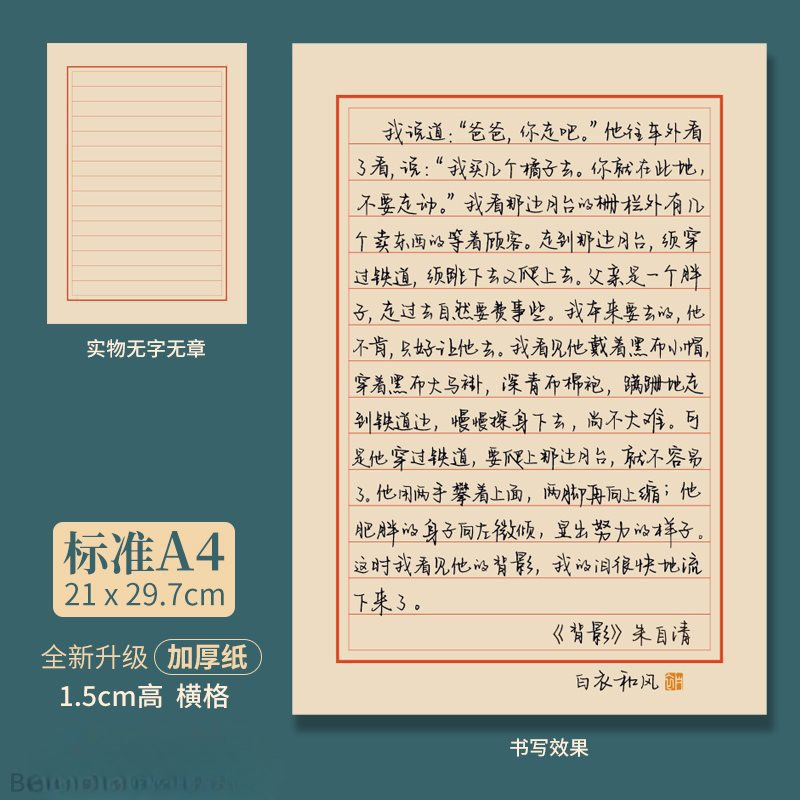 我说道：“爸爸，你走吧。”他往车外看
了看，说：“我买几个橘子去。你就在此地，
不要走动。”我看那边月台的栅栏外有几
个卖东西的等着顾客。走到那边月台，须穿
过铁道，须跳下去又爬上去。父亲是一个胖
子，走过去自然要费事些。我本来要去的，他
不肯，只好让他去。我看见他戴着黑布小帽，
穿着黑布大马褂，深青布棉袍，蹒跚地走
到铁道边，慢慢探身下去，尚不大难。可
是他穿过铁道，要爬上那边月台，就不容易
了。他用两手攀着上面，两脚再向上缩；他
肥胖的身子向左微倾，显出努力的样子。
这时我看见他的背影，我的泪很快地流
下来了。
《背影》朱自清
白衣和风
实物无字无章
标准A4
21 x 29.7cm
全新升级 加厚纸
1.5cm高 横格
书写效果